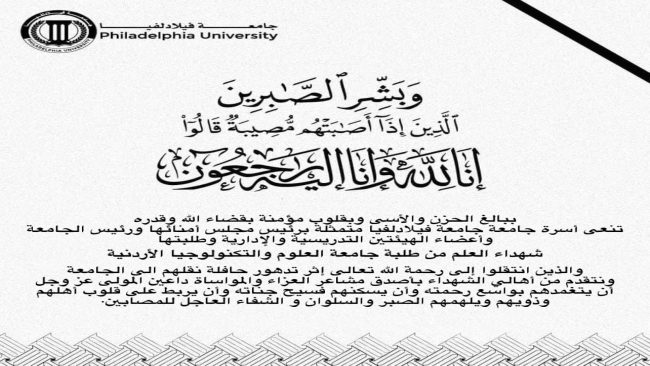 جامعــة فيلادلفيــا
Philadelphia University
PHILADELPHIA UNIVERSITY
وَبَشِّرِ ٱلصَّـٰبِرِينَ
ٱلَّذِينَ إِذَآ أَصَـٰبَتْهُم مُّصِيبَةٌ قَالُوٓا۟
إنا لله وإنا إليه راجعون
ببالغ الحزن والأسى وبقلوب مؤمنة بقضاء الله وقدره
تنعى أسرة جامعة جامعة فيلادلفيا متمثلة برئيس مجلس أمنائها ورئيس الجامعة
وأعضاء الهيئتين التدريسية والإدارية وطلبتها
شهداء العلم من طلبة جامعة العلوم والتكنولوجيا الأردنية
والذين انتقلوا إلى رحمة الله تعالى إثر تدهور حافلة نقلهم الى الجامعة
ونتقدم من أهالي الشهداء بأصدق مشاعر العزاء والمواساة داعين المولى عز وجل
أن يتغمدهم بواسع رحمته وأن يسكنهم فسيح جناته وأن يربط على قلوب أهلهم
وذويهم ويلهمهم الصبر والسلوان و الشفاء العاجل للمصابين.